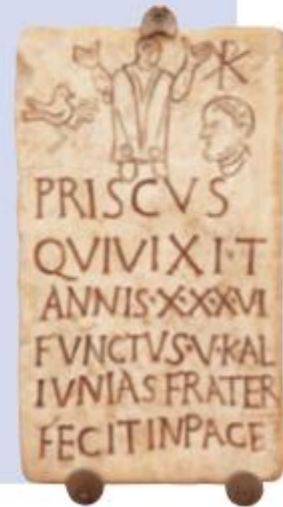 PRISCVS
QVIVIXI·T
ANNIS·X·X·XVI
FVNCTVS·V·KAL
IVNIAS FRATER
FECIT IN PACE